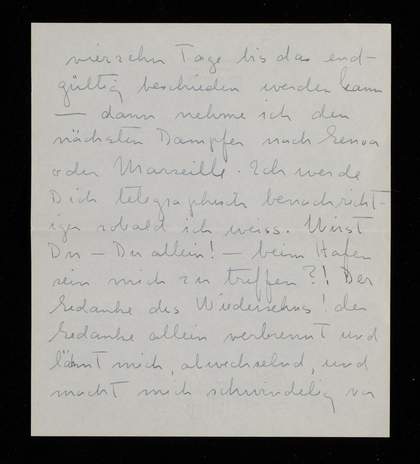 vierzehn Tage bis das end-
gültig beschieden werden kann
— dann nehme ich den
nächsten Dampfer nach Genoa
oder Marseille. Ich werde
Dich telegraphisch benachricht-
igen sobald ich weiss. Wirst
Du — Du allein! — beim Hafen
sein mich zu treffen?! Der
Gedanke des Wiedersehns! der
Gedanke allein verbrennt und
lähmt mich, abwechselnd, und
macht mich schwindelig vor